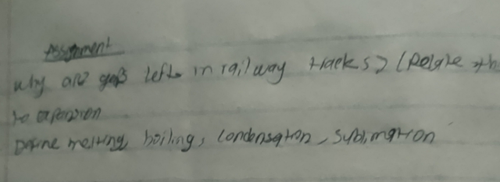 Assignment
why are gaps left in railway tracks? (Relate th
to expansion
Define melting, boiling, condensation, sublimation